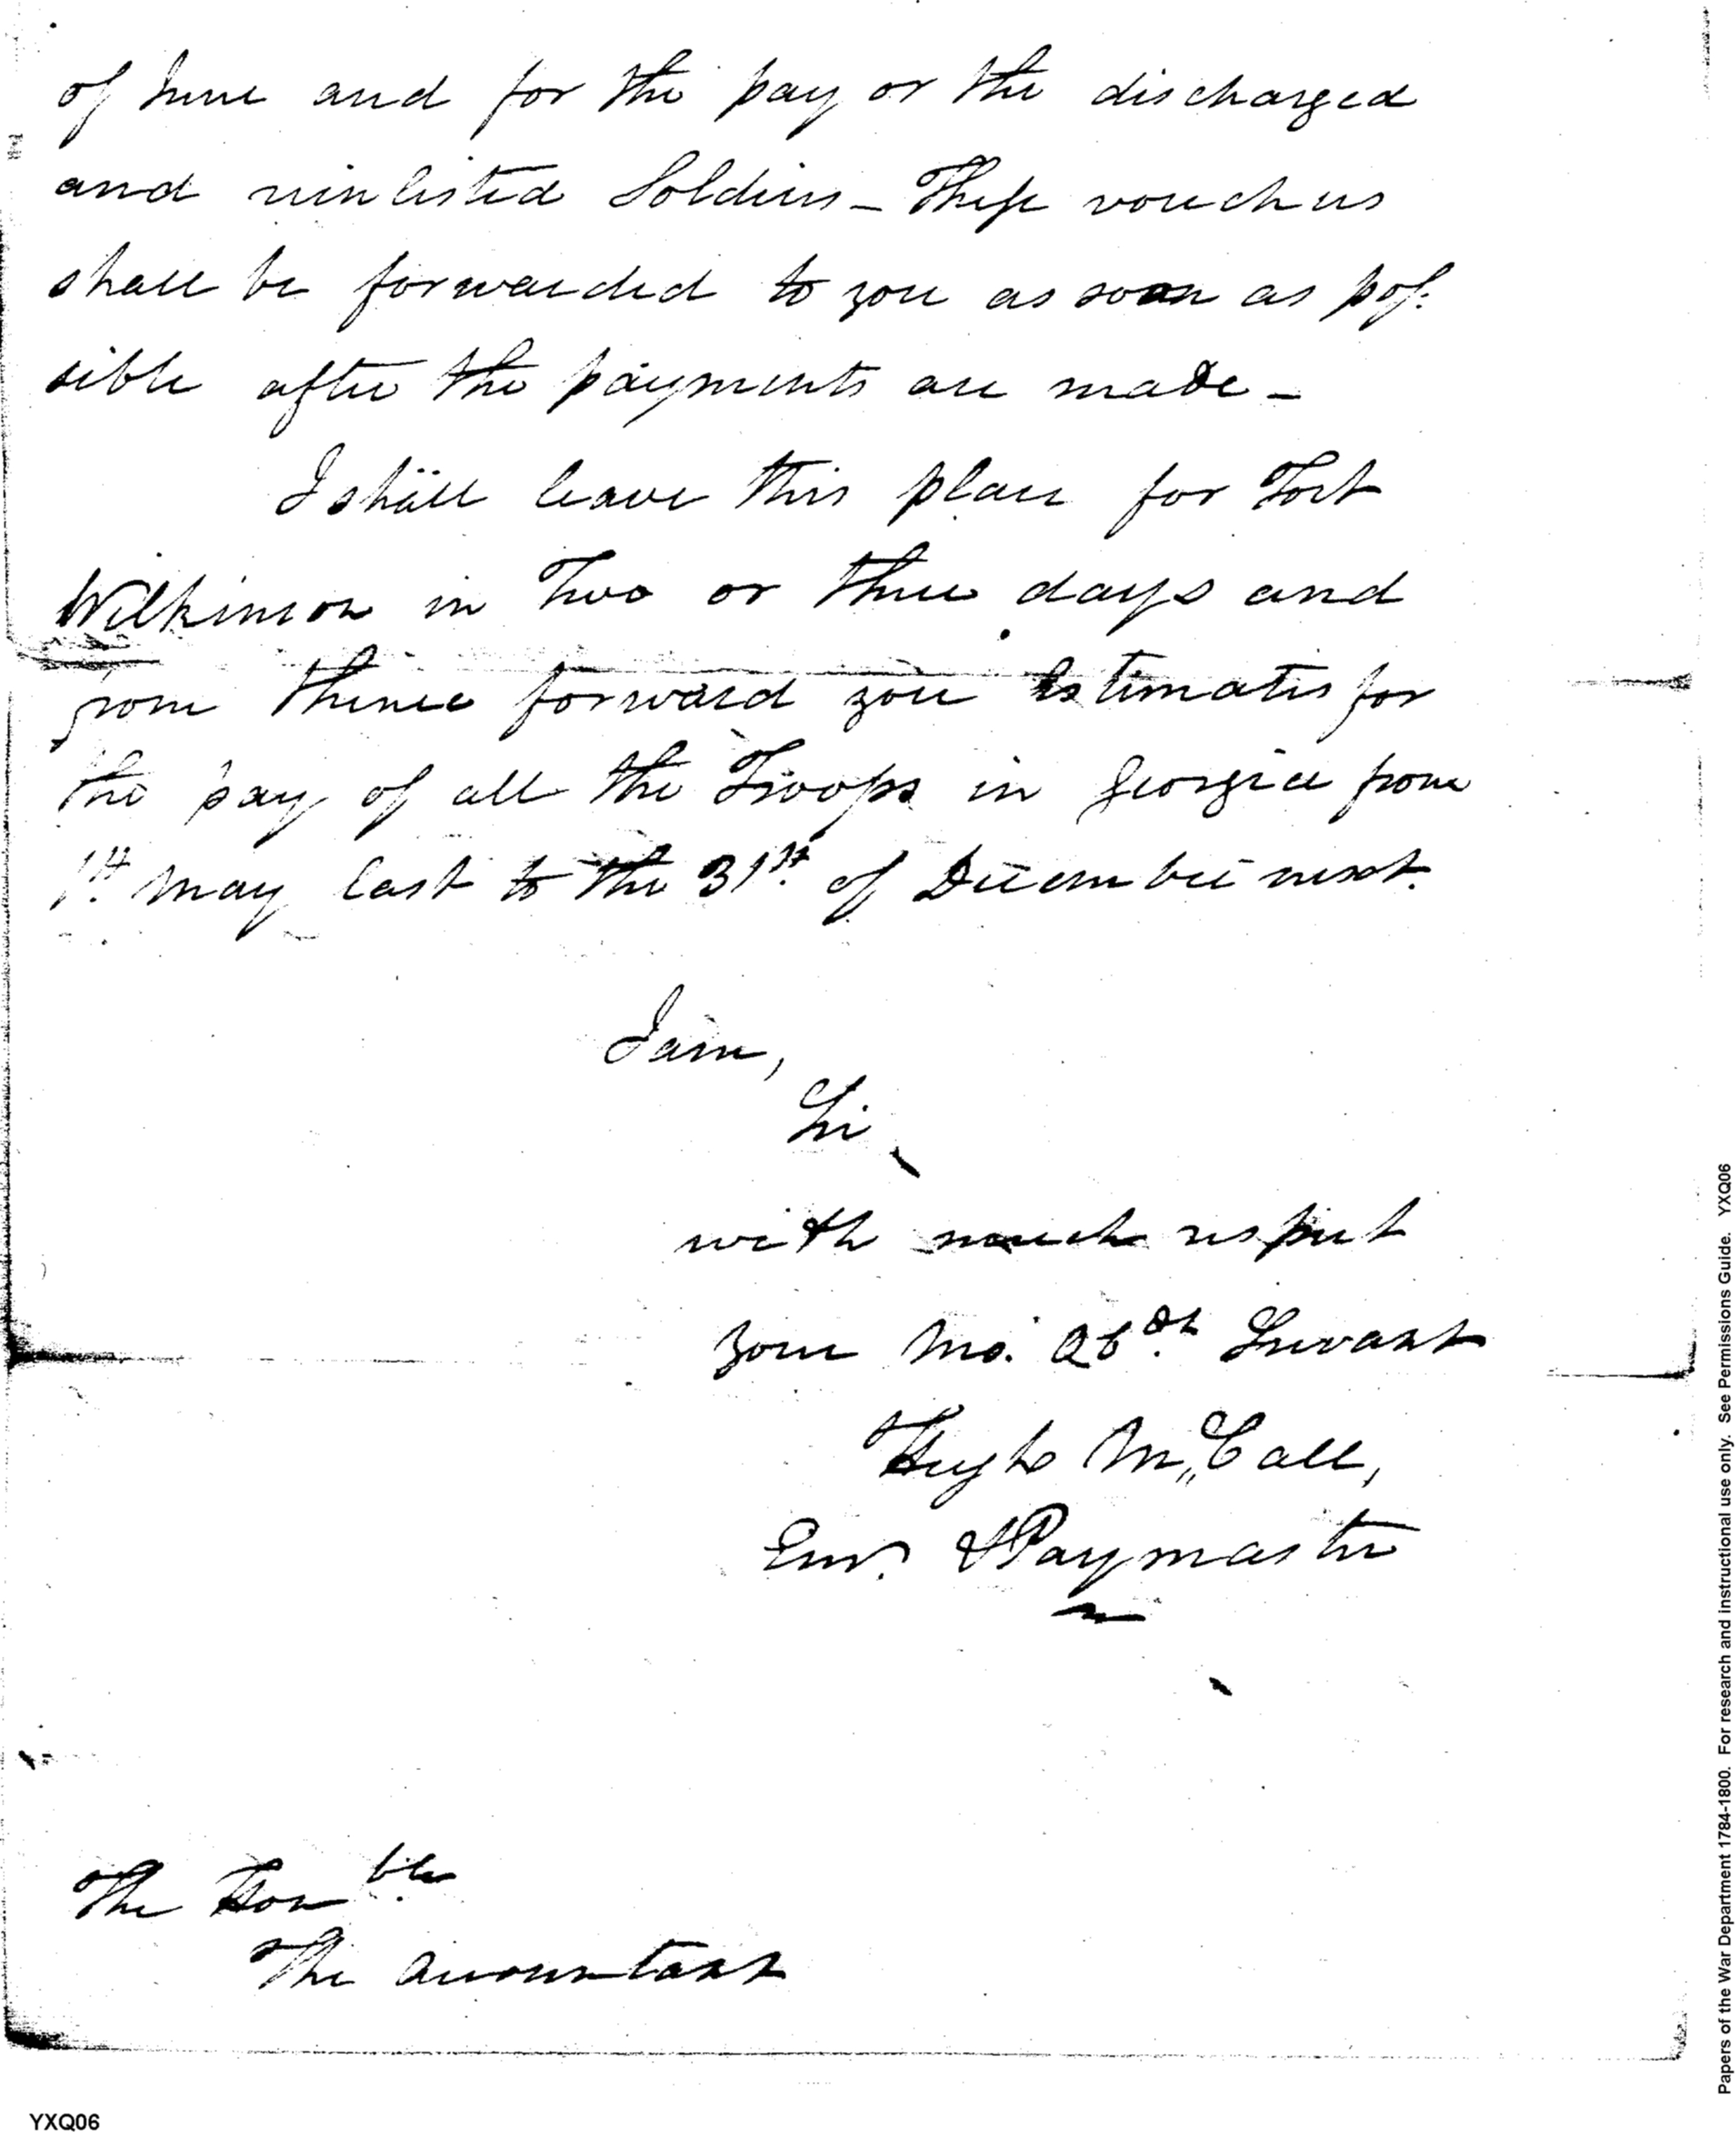 of June and for the pay or the discharged
and reinlisted Soldiers – These vouchers
shall be forwarded to you as soon as pos:
sible after the payments are made –
I shall leave this place for Fort
Wilkinson in Two or three days and
from thence forward you Estimates for
the pay of all the Troops in Georgia from
1st. May last to the 31st. of December next.
I am,
Sir
with much respect
your Mo. Obdt. Servant
Hugh McCall,
& Paymaster
The Honble
The Accountant
Papers of the War Department 1784-1800. For research and instructional use only. See Permissions Guide. YXQ06
YXQ06